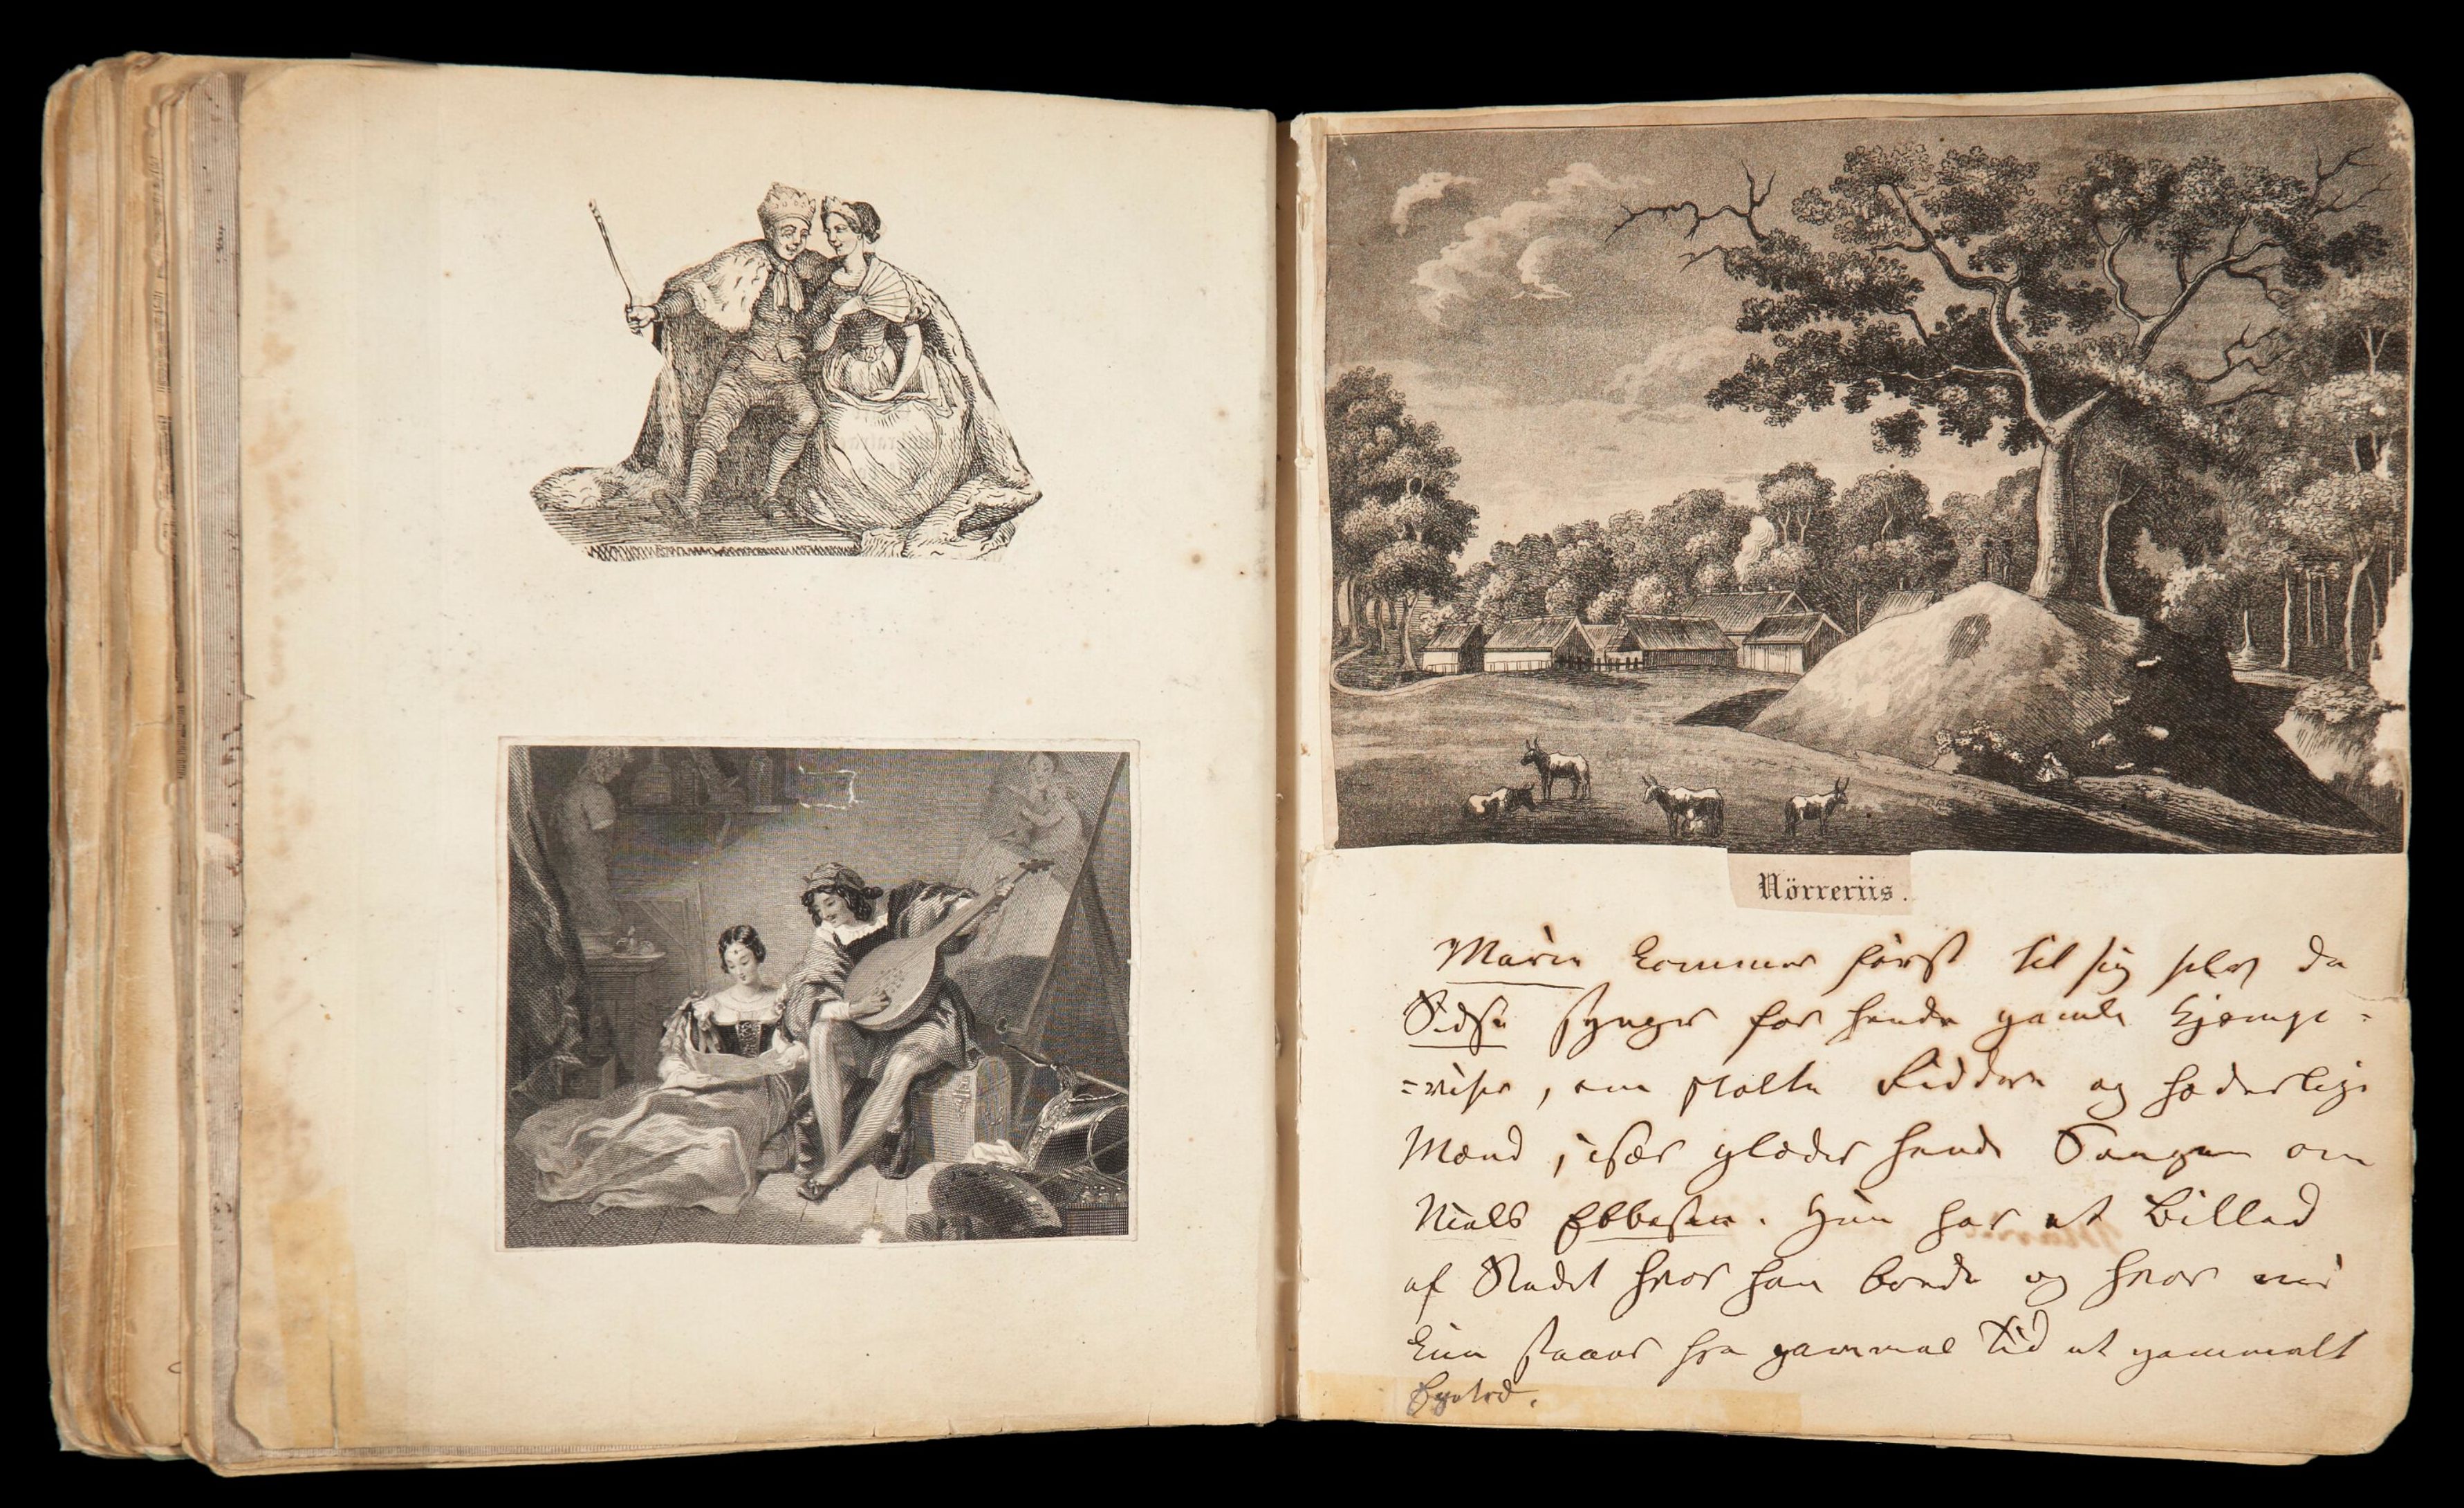 Nörreriis.
Marie kommer først til sig selv da
Sidse synger for hende gamle Kjæmpe=
=viser, om stolte Riddere og hæderlige
Mænd, især glæder hende Sangen om
Niels Ebbesen. Hun har et Billed
af Stedet hvor han boede og hvor nu
kun staaer fra gammel Tid et gammelt
Egetræ.